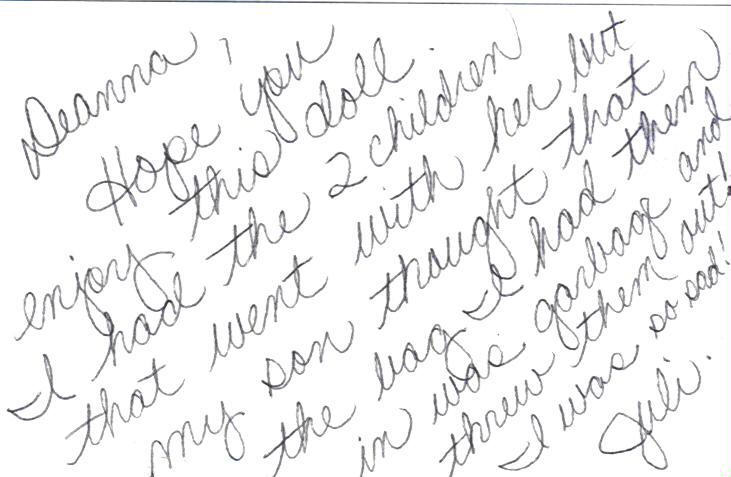 Deanna,
Hope you
enjoy this doll.
I had the 2 children
that went with her but
my son thought that
the bag I had them
in was garbage and
threw them out!
I was so sad!
Juli.